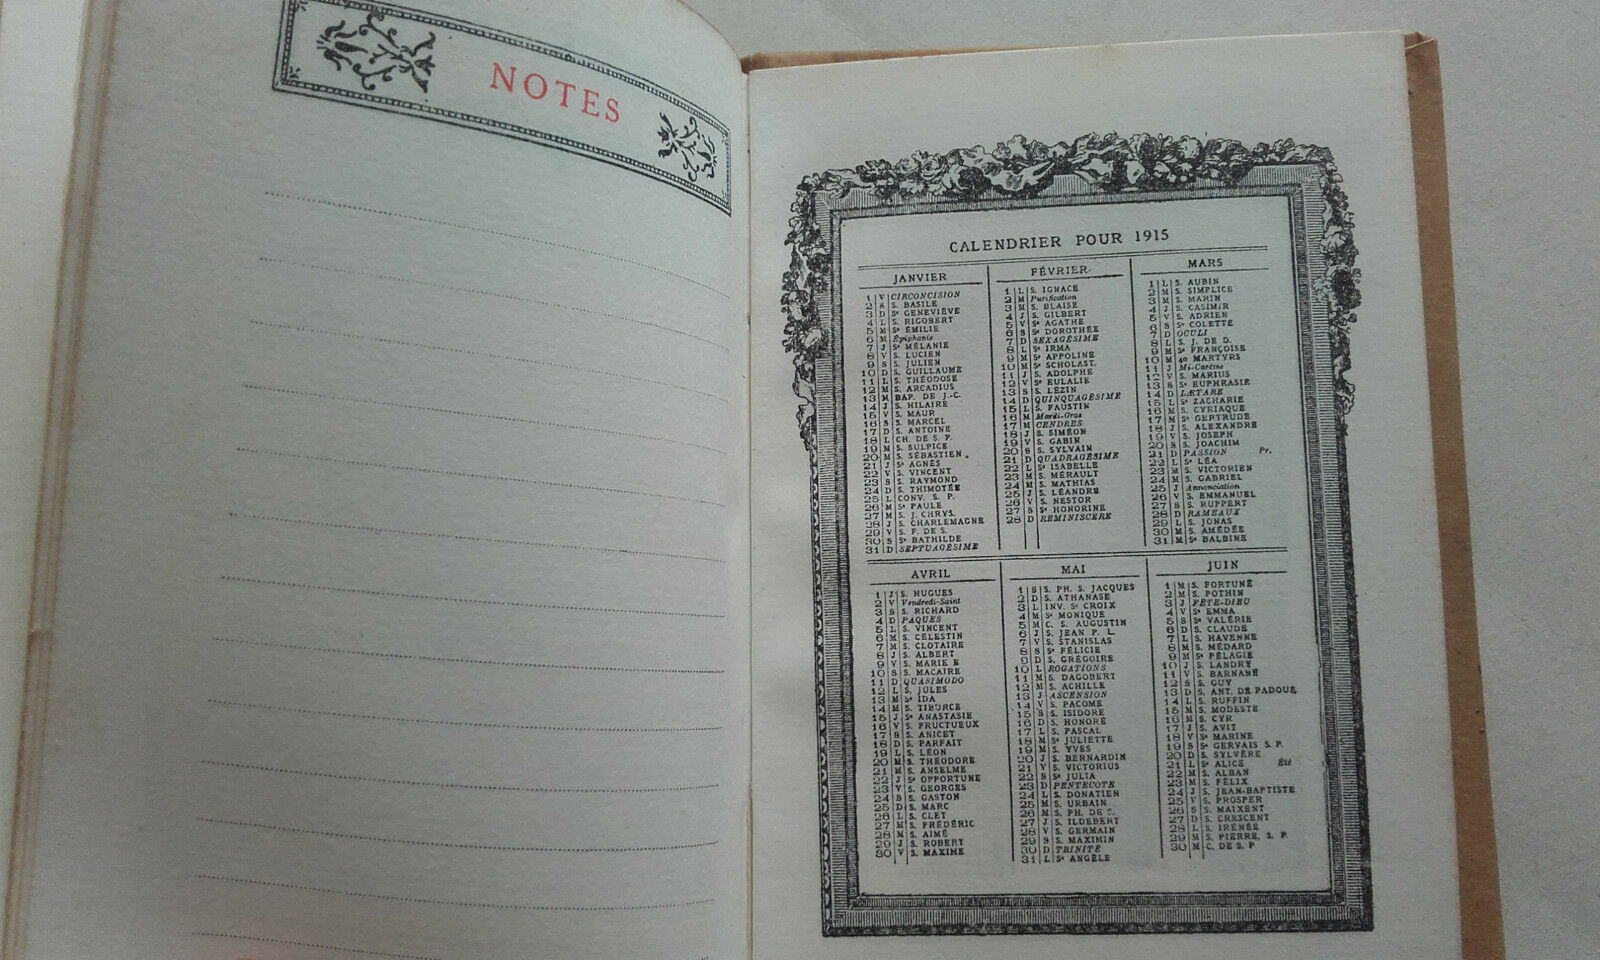 NOTES
CALENDRIER POUR 1915
JANVIER
1 V CIRCONCISION
2 S S. BASILE
3 D Se GENEVIÈVE
4 L S. RIGOBERT
5 M Se ÉMILIE
6 M Epiphanie
7 J Se MÉLANIE
8 V S. LUCIEN
9 S S. JULIEN
10 D S. GUILLAUME
11 L S. THÉODOSE
12 M S. ARCADIUS
13 M BAP. DE J.-C.
14 J S. HILAIRE
15 V S. MAUR
16 S S. MARCEL
17 D S. ANTOINE
18 L CH. DE S. P.
19 M S. SULPICE
20 M S. SÉBASTIEN
21 J Se AGNÈS
22 V S. VINCENT
23 S S. RAYMOND
24 D S. THIMOTÉE
25 L CONV. S. P.
26 M Se PAULE
27 M S. J. CHRYS.
28 J S. CHARLEMAGNE
29 V S. F. DE S.
30 S Se BATHILDE
31 D SEPTUAGÉSIME
FÉVRIER
1 L S. IGNACE
2 M Purification
3 M S. BLAISE
4 J S. GILBERT
5 V Se AGATHE
6 S Se DOROTHÉE
7 D SEXAGÉSIME
8 L Se IRMA
9 M Se APPOLINE
10 M Se SCHOLAST.
11 J S. ADOLPHE
12 V Se EULALIE
13 S S. LÉZIN
14 D QUINQUAGÉSIME
15 L S. FAUSTIN
16 M Mardi-Gras
17 M CENDRES
18 J S. SIMÉON
19 V S. GABIN
20 S S. SYLVAIN
21 D QUADRAGÉSIME
22 L Se ISABELLE
23 M S. MÉRAULT
24 M S. MATHIAS
25 J S. LÉANDRE
26 V S. NESTOR
27 S Se HONORINE
28 D REMINISCERE
MARS
1 L S. AUBIN
2 M S. SIMPLICE
3 M S. MARIN
4 J S. CASIMIR
5 V S. ADRIEN
6 S Se COLETTE
7 D OCULI
8 L S. J. DE D.
9 M Se FRANÇOISE
10 M 40 MARTYRS
11 J Mi-Carême
12 V S. MARIUS
13 S Se EUPHRASIE
14 D LÆTARE
15 L Se ZACHARIE
16 M S. CYRIAQUE
17 M Se GERTRUDE
18 J S. ALEXANDRE
19 V S. JOSEPH
20 S S. JOACHIM
21 D PASSION Pr.
22 L Se LÉA
23 M S. VICTORIEN
24 M S. GABRIEL
25 J Annonciation
26 V S. EMMANUEL
27 S S. RUPPERT
28 D RAMEAUX
29 L S. JONAS
30 M S. AMÉDÉE
31 M Se BALBINE
AVRIL
1 J S. HUGUES
2 V Vendredi-Saint
3 S S. RICHARD
4 D PAQUES
5 L S. VINCENT
6 M S. CÉLESTIN
7 M S. CLOTAIRE
8 J S. ALBERT
9 V S. MARIE E
10 S S. MACAIRE
11 D QUASIMODO
12 L S. JULES
13 M Se IDA
14 M S. TIBURCE
15 J Se ANASTASIE
16 V S. FRUCTUEUX
17 S S. ANICET
18 D S. PARFAIT
19 L S. LÉON
20 M S. THÉODORE
21 M S. ANSELME
22 J Se OPPORTUNE
23 V S. GEORGES
24 S S. GASTON
25 D S. MARC
26 L S. CLET
27 M S. FRÉDÉRIC
28 M S. AIMÉ
29 J S. ROBERT
30 V S. MAXIME
MAI
1 S S. PH. S. JACQUES
2 D S. ATHANASE
3 L INV. Se CROIX
4 M Se MONIQUE
5 M C. S. AUGUSTIN
6 J S. JEAN P. L.
7 V S. STANISLAS
8 S Se FÉLICIE
9 D S. GRÉGOIRE
10 L ROGATIONS
11 M S. DAGOBERT
12 M S. ACHILLE
13 J ASCENSION
14 V S. PACOME
15 S S. ISIDORE
16 D S. HONORÉ
17 L S. PASCAL
18 M Se JULIETTE
19 M S. YVES
20 J S. BERNARDIN
21 V S. VICTORIUS
22 S Se JULIA
23 D PENTECOTE
24 L S. DONATIEN
25 M S. URBAIN
26 M S. PH. DE S.
27 J S. ILDEBERT
28 V S. GERMAIN
29 S S. MAXIMIN
30 D TRINITÉ
31 L Se ANGÈLE
JUIN
1 M S. FORTUNÉ
2 M S. POTHIN
3 J FÊTE-DIEU
4 V Se EMMA
5 S Se VALÉRIE
6 D S. CLAUDE
7 L S. HAVENNE
8 M S. MÉDARD
9 M Se PÉLAGIE
10 J S. LANDRY
11 V S. BARNABÉ
12 S S. GUY
13 D S. ANT. DE PADOUE
14 L S. RUFFIN
15 M S. MODESTE
16 M S. CYR
17 J S. AVIT
18 V Se MARINE
19 S Se GERVAIS S. P.
20 D S. SYLVÈRE
21 L Se ALICE Été
22 M S. ALBAN
23 M S. FÉLIX
24 J S. JEAN-BAPTISTE
25 V S. PROSPER
26 S S. MAIXENT
27 D S. CRESCENT
28 L S. IRÉNÉE
29 M S. PIERRE, S. P.
30 M C. DE S. P